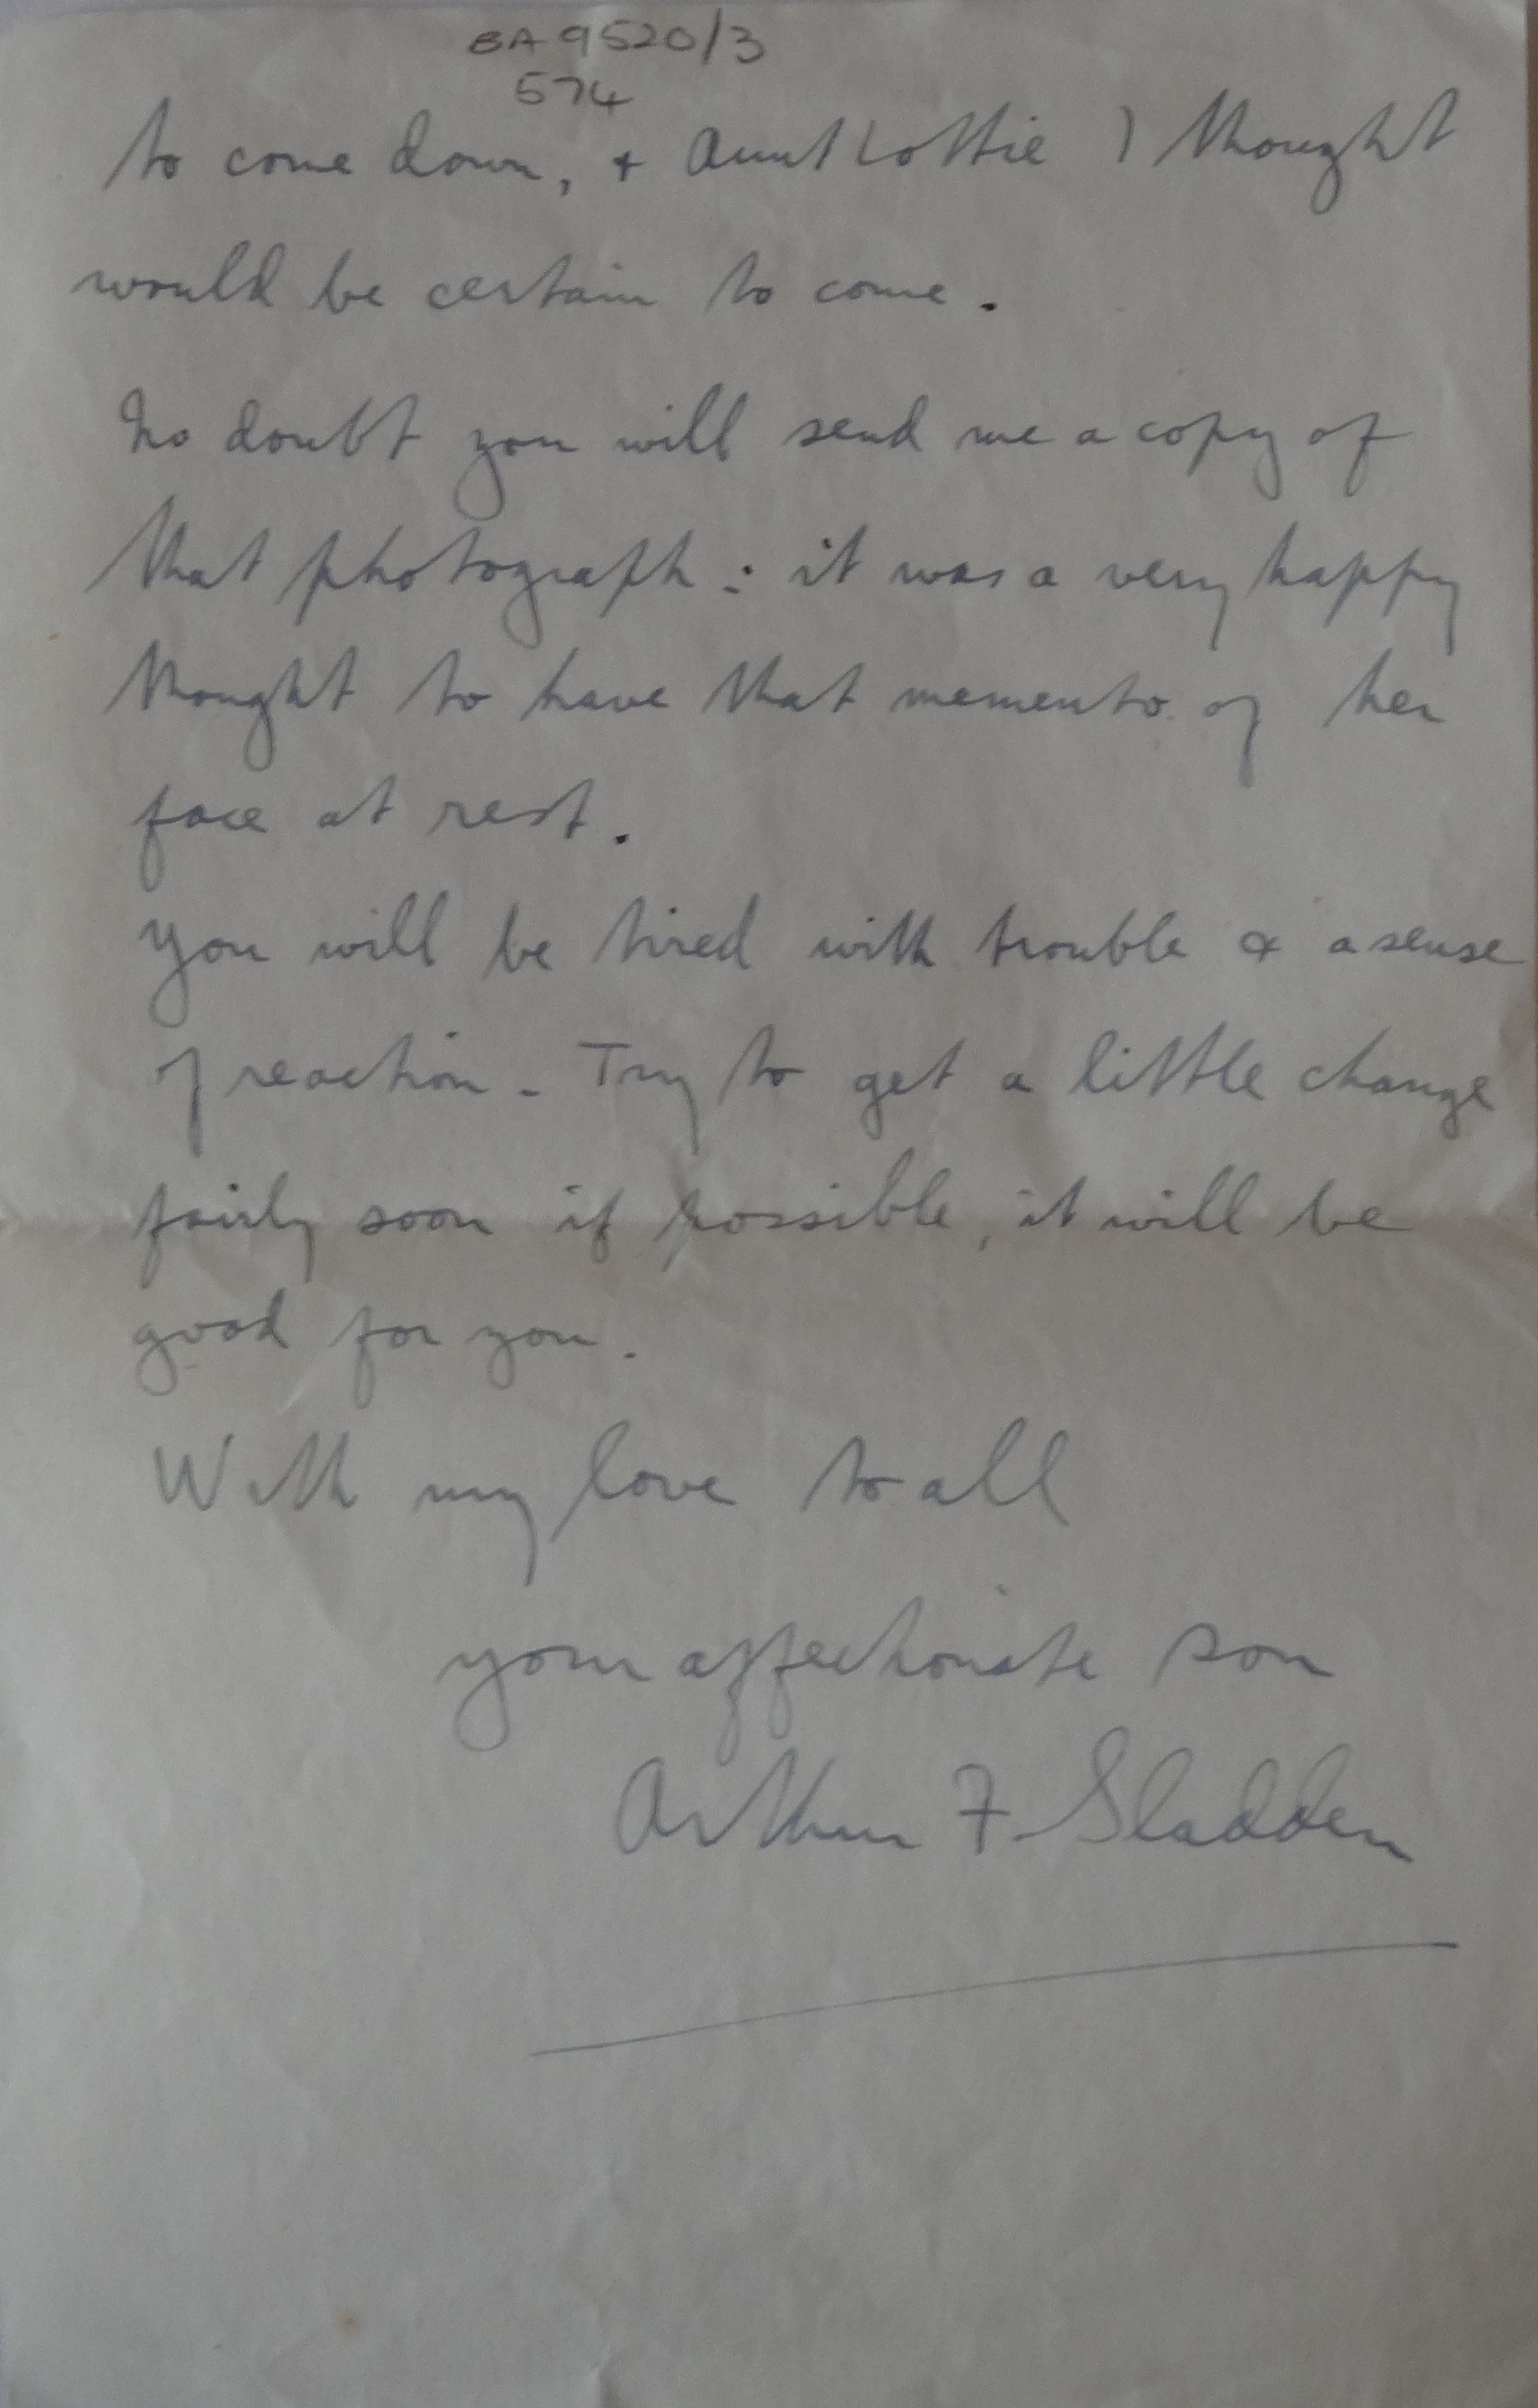 BA 9520/3
574
to come down, & Aunt Lottie I thought
would be certain to come.
No doubt you will send me a copy of
that photograph: it was a very happy
thought to have that memento of her
face at rest.
You will be tired with trouble & a sense
of reaction - Try to get a little change
fairly soon if possible, it will be
good for you.
With my love to all
your affectionate son
Arthur F. Sladden